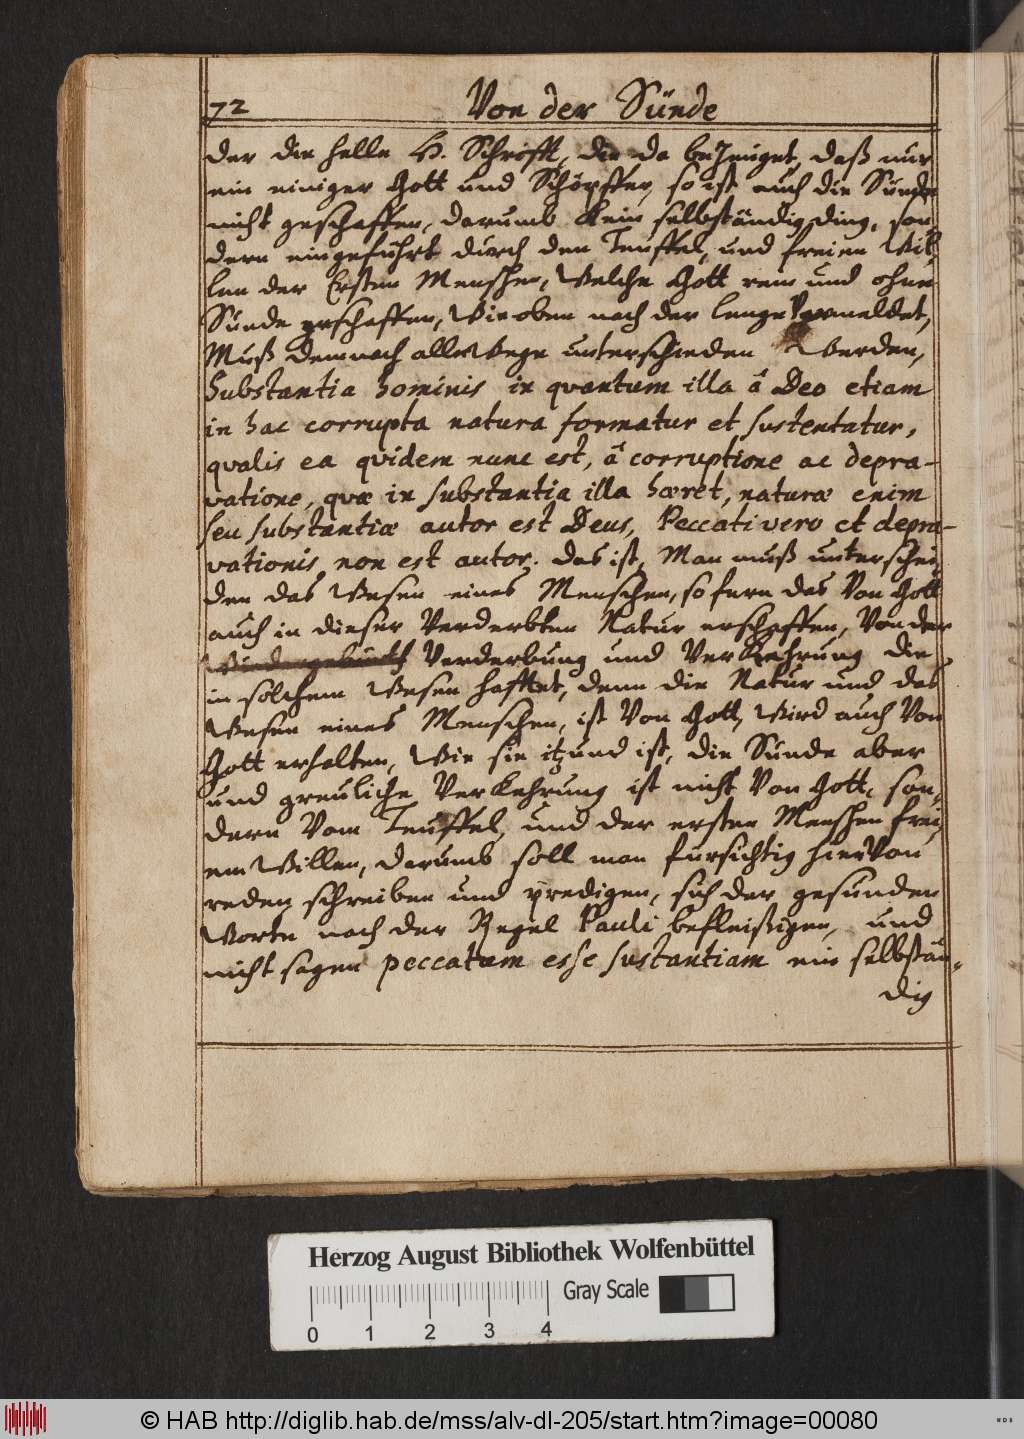 72 Von der Sünde
der die helle H. Schrifft, die da bezeuget, daß nur
ein einiger Gott und Schöpffer, so ist auch die Sünde
nicht geschaffen, darumb kein selbständig ding, son
dern eingeführt durch den Teuffel, und freien Wil
len der Ersten Menschen, Welche Gott rein und ohne
Sünde erschaffen, Wie oben nach der lenge Vermeldet,
Muß demnach alle Wege unterschieden Werden,
Substantia hominis in quantum illa â Deo etiam
in hac corrupta natura formatur et sustentatur,
qvalis ea qvidem nunc est, â corruptione ac depra-
vatione, qvæ in substantia illa hæret, naturæ enim
seu substantiæ autor est Deus, Peccati vero et depra-
vationis non est autor. das ist, Man muß unterschei
den das Wesen eines Menschen, so fern das Von Gott
auch in dieser Verderbten Natur erschaffen, Von der
Verderbung und VerKehrung die
in solchem Wesen hafftet, denn die Natur und das
Wesen eines Menschen, ist Von Gott, Wird auch Von
Gott erhalten, Wie sie itzund ist, die Sünde aber
und greuliche VerKehrung ist nicht Von Gott, son,
dern Vom Teuffel, und der ersten Menschen frei,
em Willen, darumb soll man fürsichtig hierVon
reden schreiben und predigen, sich der gesunden
Worte nach der Regel Pauli befleißigen, und
nicht sagen peccatum esse sustantiam ein selbstän-
dig
Herzog August Bibliothek Wolfenbüttel
Gray Scale
0 1 2 3 4
© HAB http://diglib.hab.de/mss/alv-dl-205/start.htm?image=00080